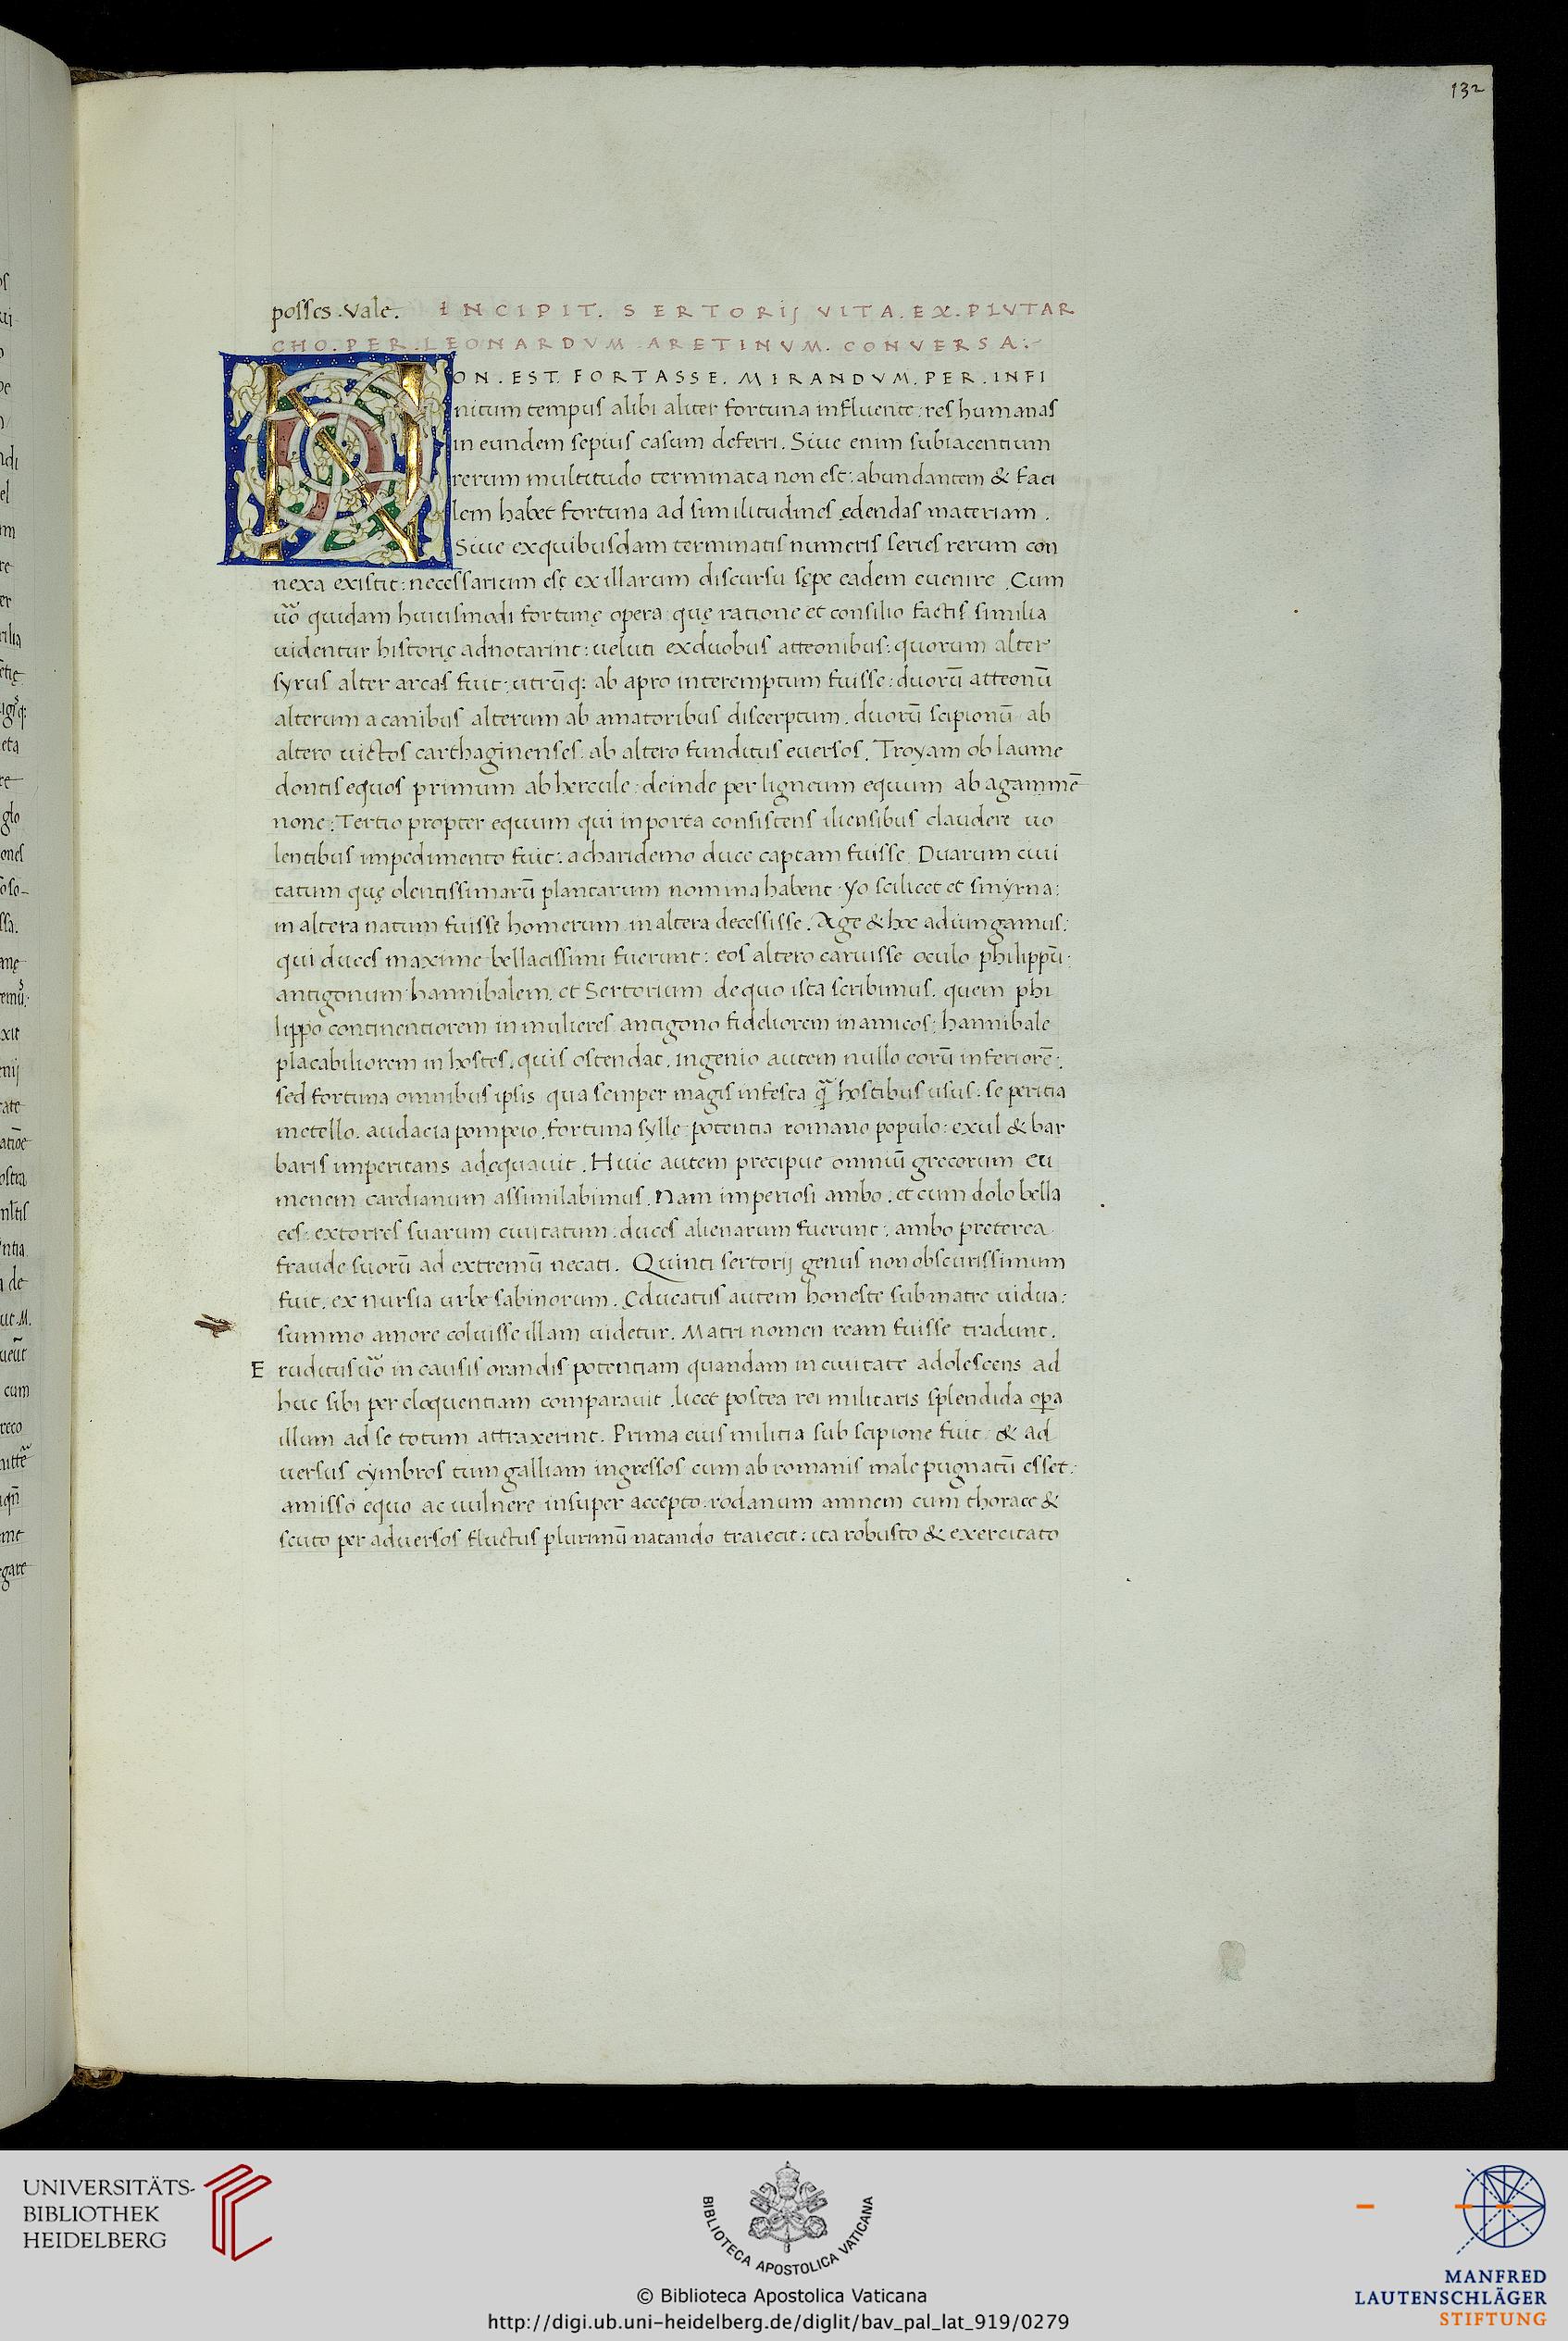 132
posses. Vale. INCIPIT. SERTORIJ VITA. EX. PLVTAR
CHO. PER. LEONARDVM. ARETINVM. CONVERSA:
NON. EST. FORTASSE. MIRANDVM. PER. INFI
nitum tempus alibi aliter fortuna influente: res humanas
in eundem sepius casum deferri. Siue enim subiacentium
rerum multitudo terminata non est: abundantem & faci
lem habet fortuna ad similitudines ędendas materiam.
Siue ex quibusdam terminatis numeris series rerum con
nexa existit: necessarium est ex illarum discursu sępe eadem euenire. Cum
uo̅ quidam huiusmodi fortunę opera: quę ratione et consilio factis similia
uidentur historię adnotarint: ueluti ex duobus atteonibus: quorum alter
syrus alter arcas fuit: utru̅q: ab apro interemptum fuisse: duoru̅ atteonu̅
alterum a canibus alterum ab amatoribus discerptum. duoru̅ scipionu̅ ab
altero uictos carthaginenses. ab altero funditus euersos. Troyam ob laume
dontis equos primum ab hercule: deinde per ligneum equum ab agamme̅
none: Tertio propter equum qui in porta consistens iliensibus claudere uo
lentibus impedimento fuit: a charidemo duce captam fuisse. Duarum ciui
tatum quę olentissimaru̅ plantarum nomina habent. Yo scilicet et smyrna:
in altera natum fuisse homerum in altera decessisse. Age & hoc adiungamus:
qui duces maxime bellacissimi fuerunt: eos altero caruisse oculo philippu̅:
antigonum hannibalem. et Sertorium de quo ista scribimus. quem phi
lippo continentiorem in mulieres antigono fideliorem in amicos: hannibale
placabiliorem in hostes. quis ostendat. ingenio autem nullo eoru̅ inferiore̅:
sed fortuna omnibus ipsis qua semper magis infesta qua̅ hostibus usus: se peritia
metello. audacia pompeio. fortuna syllę potentia romano populo: exul & bar
baris imperitans adęquauit. Huic autem precipue omniu̅ grecorum eu
menem cardianum assimilabimus. Nam imperiosi ambo. et cum dolo bella
ces: extorres suarum ciuitatum: duces alienarum fuerunt: ambo preterea
fraude suoru̅ ad extremu̅ necati. Quinti sertorij genus non obscurissimum
fuit. ex nursia urbe sabinorum. Educatus autem honeste sub matre uidua:
summo amore coluisse illam uidetur. Matri nomen ream fuisse tradunt.
Eruditus uo̅ in causis orandis potentiam quandam in ciuitate adolescens ad
huc sibi per eloquentiam comparauit. licet postea rei militaris splendida opa
illum ad se totum attraxerint. Prima eius militia sub scipione fuit. & ad
uersus cymbros tum galliam ingressos cum ab romanis male pugnatu̅ esset:
amisso equo ac uulnere insuper accepto. rodanum amnem cum thorace &
scuto per aduersos fluctus plurimu̅ natando traiecit: ita robusto & exercitato
UNIVERSITÄTS-
BIBLIOTHEK
HEIDELBERG
BIBLIOTECA APOSTOLICA VATICANA
© Biblioteca Apostolica Vaticana
http://digi.ub.uni-heidelberg.de/diglit/bav_pal_lat_919/0279
MANFRED
LAUTENSCHLÄGER
STIFTUNG